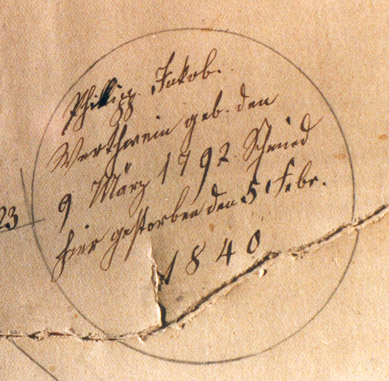 Philipp Jakob.
Werthwein geb. den
9 März 1792. Schmied
hier gestorben den 5 Febr.
1840
23